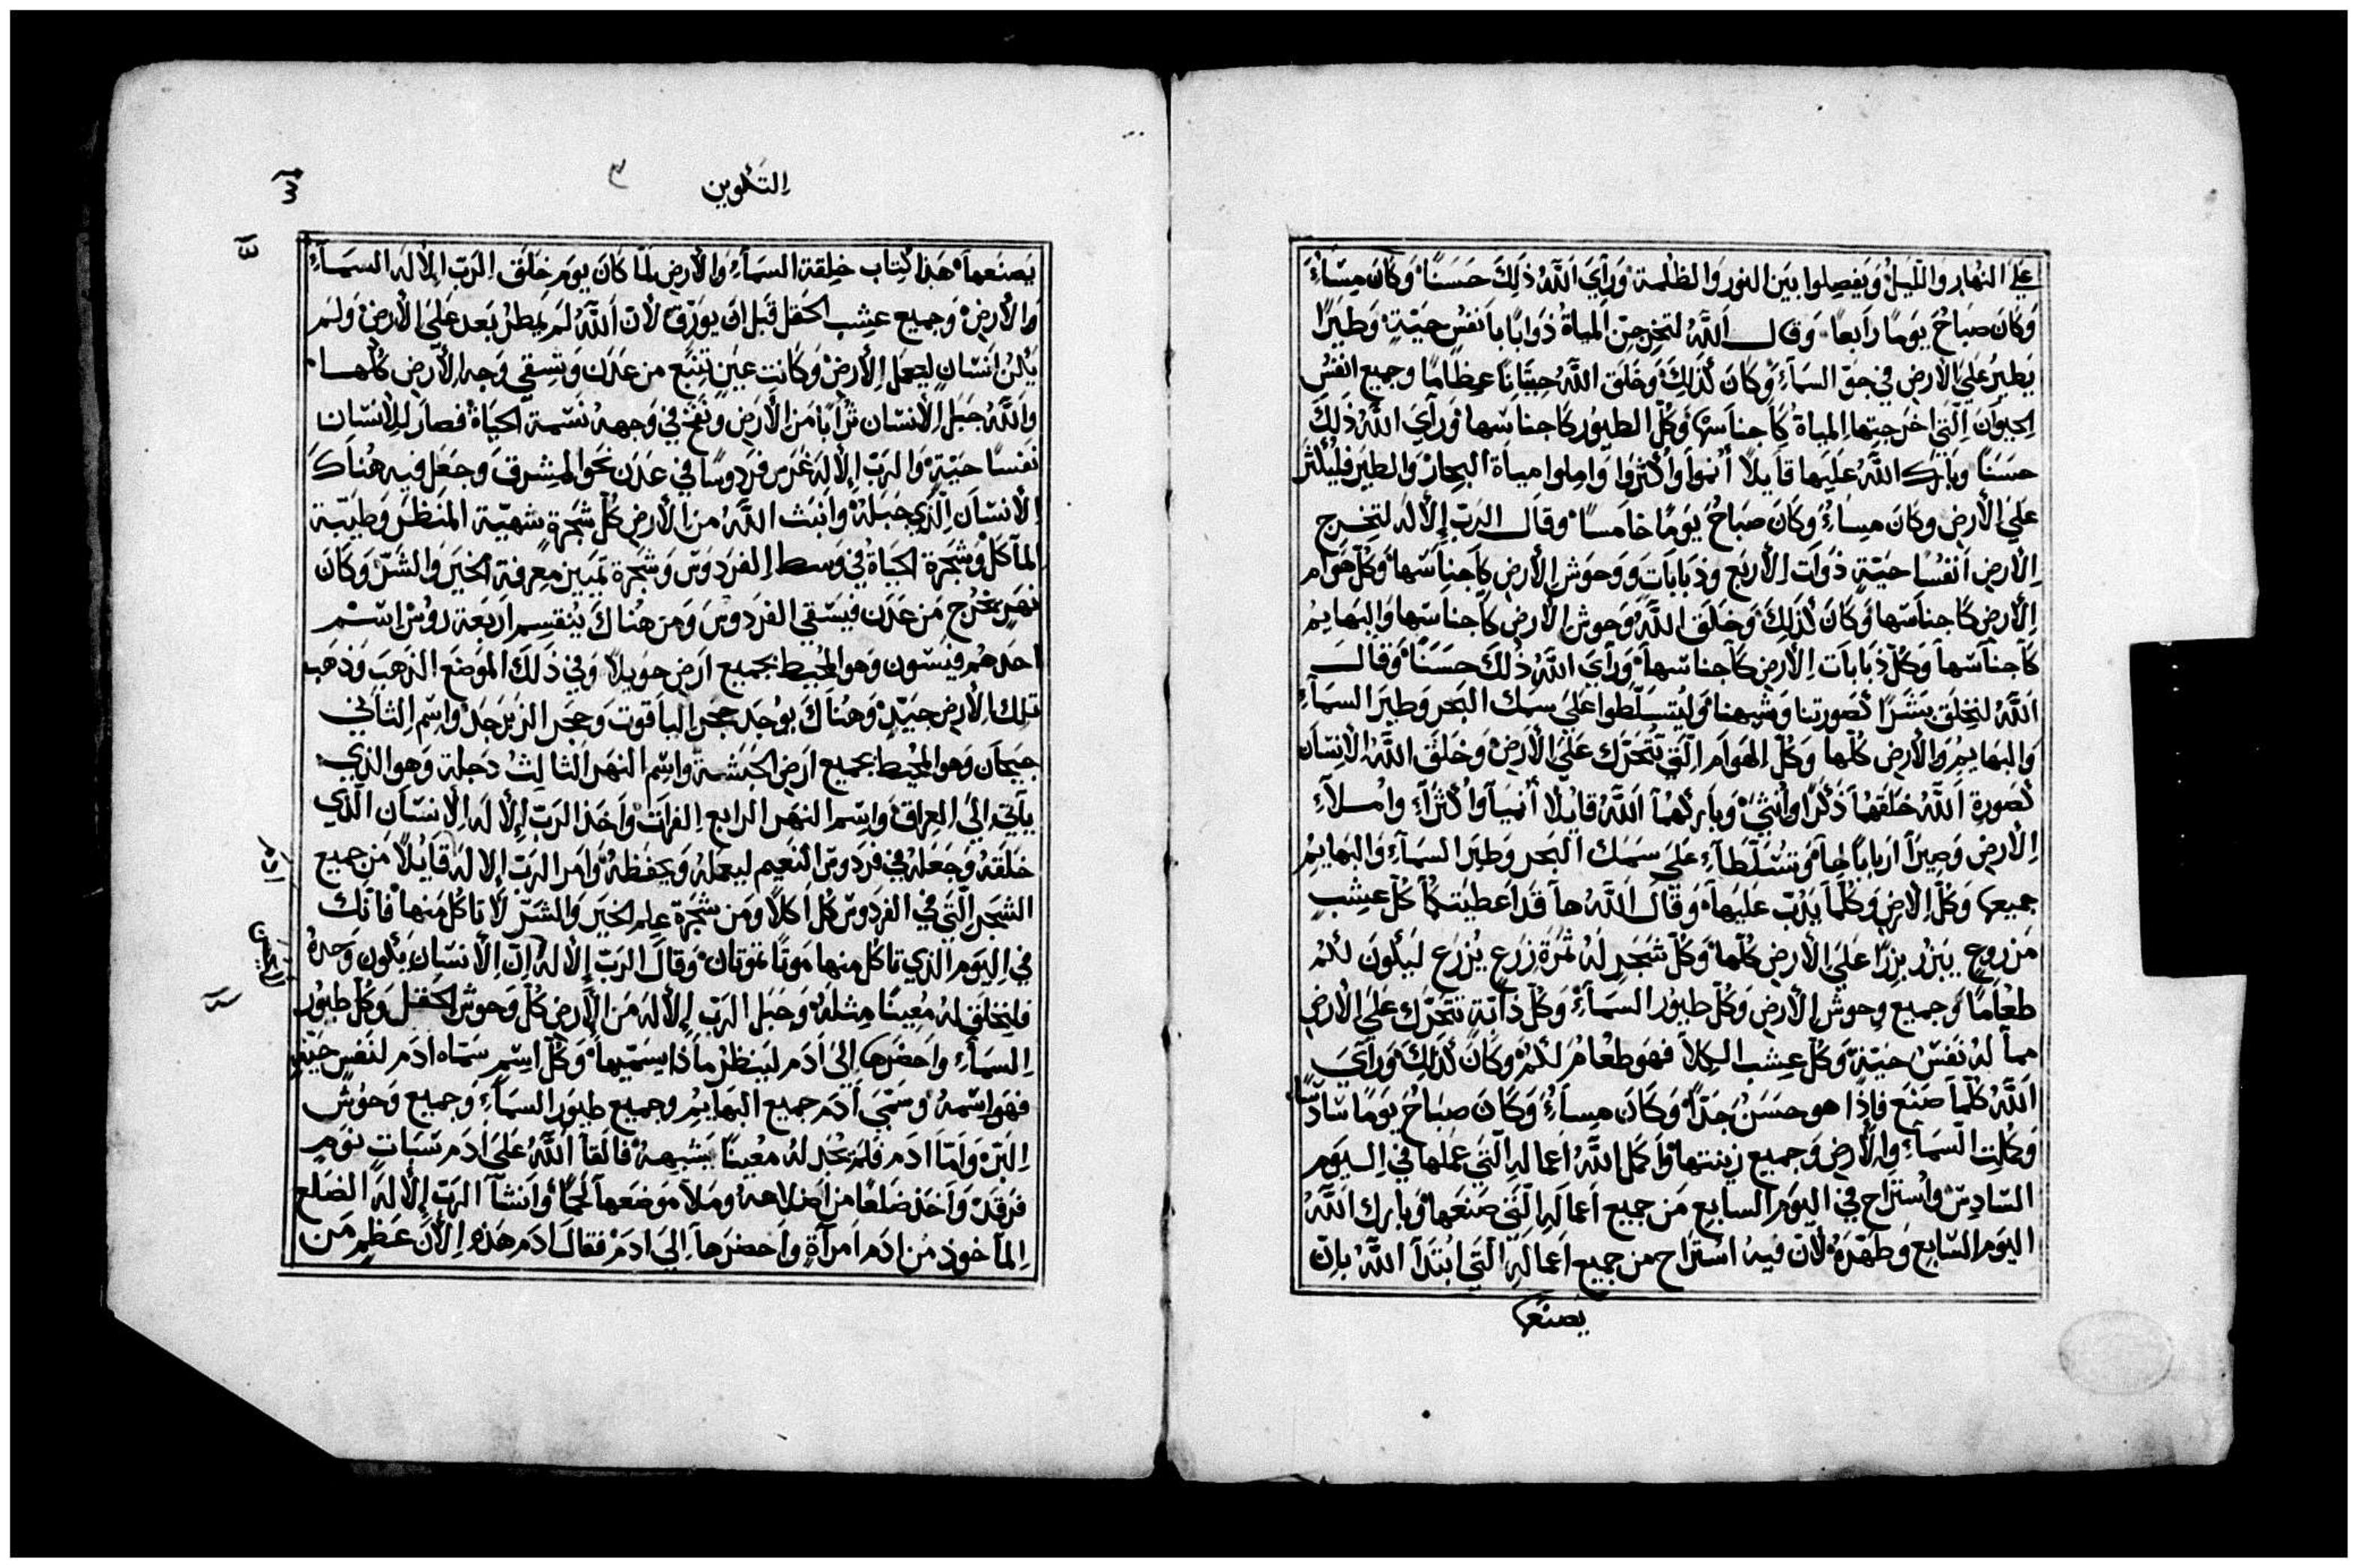 علي النهار والليل ويفصلوا بين النور والظلمة ورأي الله ذلك حسنا وكان مساء
وكان صباح يوما رابعا وقال الله لتخرج من المياة ذوابا بانفس حية وطيرا
يطير علي الارض في جو السماء وكان كذلك وخلق الله حيتانا عظاما وجميع انفس
الحيوان التي اخرجتها المياة كاجناسها وكل الطيور كاجناسها ورأي الله ذلك
حسنا وبارك الله عليها قايلا أنموا وأكثروا وامِلوا مياة البحار والطير فليكثر
علي الارض وكان مساء وكان صباح يوما خامسا وقال الرب الاله لتخرج
الارض انفسا حية ذوات الاربع وذبابات ووحوش الارض كاجناسها وكل هوام
الارض كاجناسها وكان كذلك وخلق الله وحوش الارض كاجناسها والبهايم
كاجناسها وكل ذبابات الارض كاجناسها ورأي الله ذلك حسنا وقال
الله لنخلق بشرا كصورتنا وشبهنا وليتسلطوا علي سمك البحر وطير السماء
والبهايم والارض كلها وكل الهوام التي تتحرك علي الارض وخلق الله الانسان
كصورة الله خلقهما ذكرا وأنثي وباركهما الله قايلا أنميا وأكثرا واملاء
الارض وصيرا اربابا لها وتسلطاء علي سمك البحر وطير السماء والبهايم
جميعها وكل الارض وكلما يدب عليها وقال الله ها قد اعطيتكما كل عشب
مزروع يبزر بزرا علي الارض كلها وكل شجر له ثمرة زرع يزرع ليكون لكم
طعاما وجميع وحوش الارض وكل طيور السماء وكل دابة تتحرك علي الارض
مما له نفس حية وكل عشب الكلا فهو طعام لكم وكان كذلك ورأي
الله كلما صنع فاذا هو حسن جدا وكان مساء وكان صباح يوما سادسا
وكملت السماء والارض وجميع زينتها وأكمل الله اعماله التي عملها في اليوم
السادس واستراح في اليوم السابع من جميع اعماله التي صنعها وبارك الله
اليوم السابع وطهره لان فيه استراح من جميع اعماله التي ابتدأ الله بان
يصنعها
التكوين
٣
يصنعها هذا كتاب خلقة السماء والارض لما كان يوم خلق الرب الاله السماء
والارض وجميع عشب الحقل قبل ان يورق لان الله لم يمطر بعد علي الارض ولم
يكن انسان ليعمل الارض وكانت عين تنبع من عدن وتسقي وجه الارض كلها
والله جبل الانسان ترابا من الارض ونفخ في وجهه نسمة الحياة فصار الانسان
نفسا حية والرب الاله غرس فردوسا في عدن نحو المشرق وجعل فيه هناك
الانسان الذي جبله وانبت الله من الارض كل شجرة شهية المنظر وطيبة
المآكل وشجرة الحياة في وسط الفردوس وشجرة تمييز معرفة الخير والشر وكان
نهر يخرج من عدن فيسقي الفردوس ومن هناك ينقسم اربعة روس اسم
احدهم فيسون وهو المحيط بجميع ارض حويلا وفي ذلك الموضع الذهب وذهب
تلك الارض جيد وهناك يوجد حجر الياقوت وحجر الزبرجد واسم الثاني
جيحان وهو المحيط بجميع ارض الحبشة واسم النهر الثالث دجلة وهو الذي
يأتي الي العراق واسم النهر الرابع الفرات وأخذ الرب الاله الانسان الذي
خلقه وجعله في فردوس النعيم ليعمله ويحفظه وامر الرب الاله قايلا من جميع
الشجر التي في الفردوس كل اكلا ومن شجرة علم الخير والشر لا تاكل منها فانك
في اليوم الذي تاكل منها موتا تموتان وقال الرب الاله ان الانسان يكون وحده
فلنخلق له معينا مثله وجبل الرب الاله من الارض كل وحوش الحقل وكل طيور
السماء واحضرها الي ادم لينظر ماذا يسميها وكل اسم سماه ادم لنفس حية
فهو اسمه وسمي ادم جميع البهايم وجميع طيور السماء وجميع وحوش
البر وأما ادم فلم يجد له معينا يشبهه فالقا الله علي ادم سبات نوم
فرقد وأخذ ضلعا من اضلاعه وملا موضعها لحما وأنشا الرب الاله الضلع
المأخوذ من ادم امرأة واحضرها الي ادم فقال ادم هذه الان عظم من